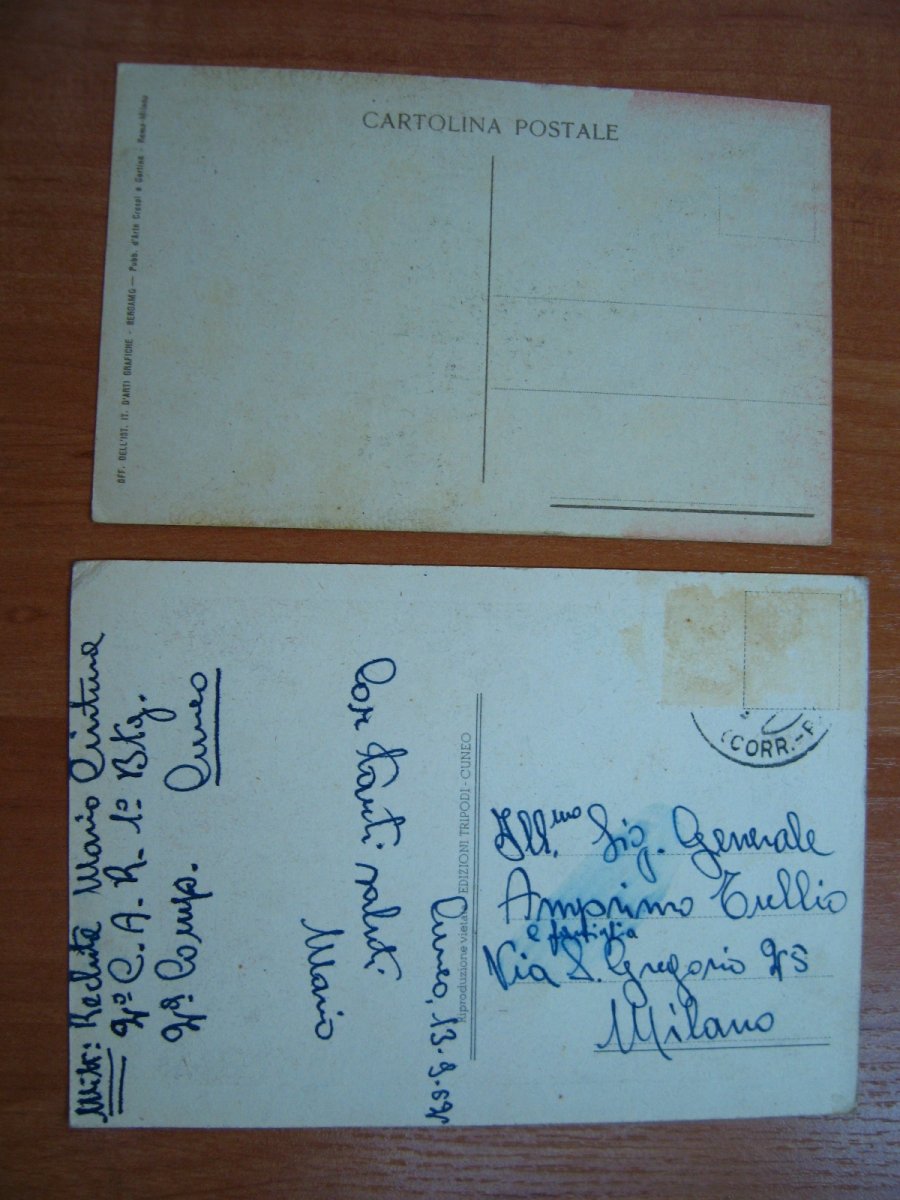 CARTOLINA POSTALE
OFF. DELL'IST. IT. D'ARTI GRAFICHE - BERGAMO — Pubb. d'Arte Crespi e Gerline - Roma-Milano
Mitt: Recluta Mario
2º C. A. R. 1º Btg.
2ª Comp. Cuneo
Con tanti saluti
Mario
Cuneo, 13-9-
Riproduzione vietata EDIZIONI TRIPODI - CUNEO
(CORR.-P
Ill.mo Sig. Generale
Amprimo
e famiglia
Via S. Gregorio 25
Milano